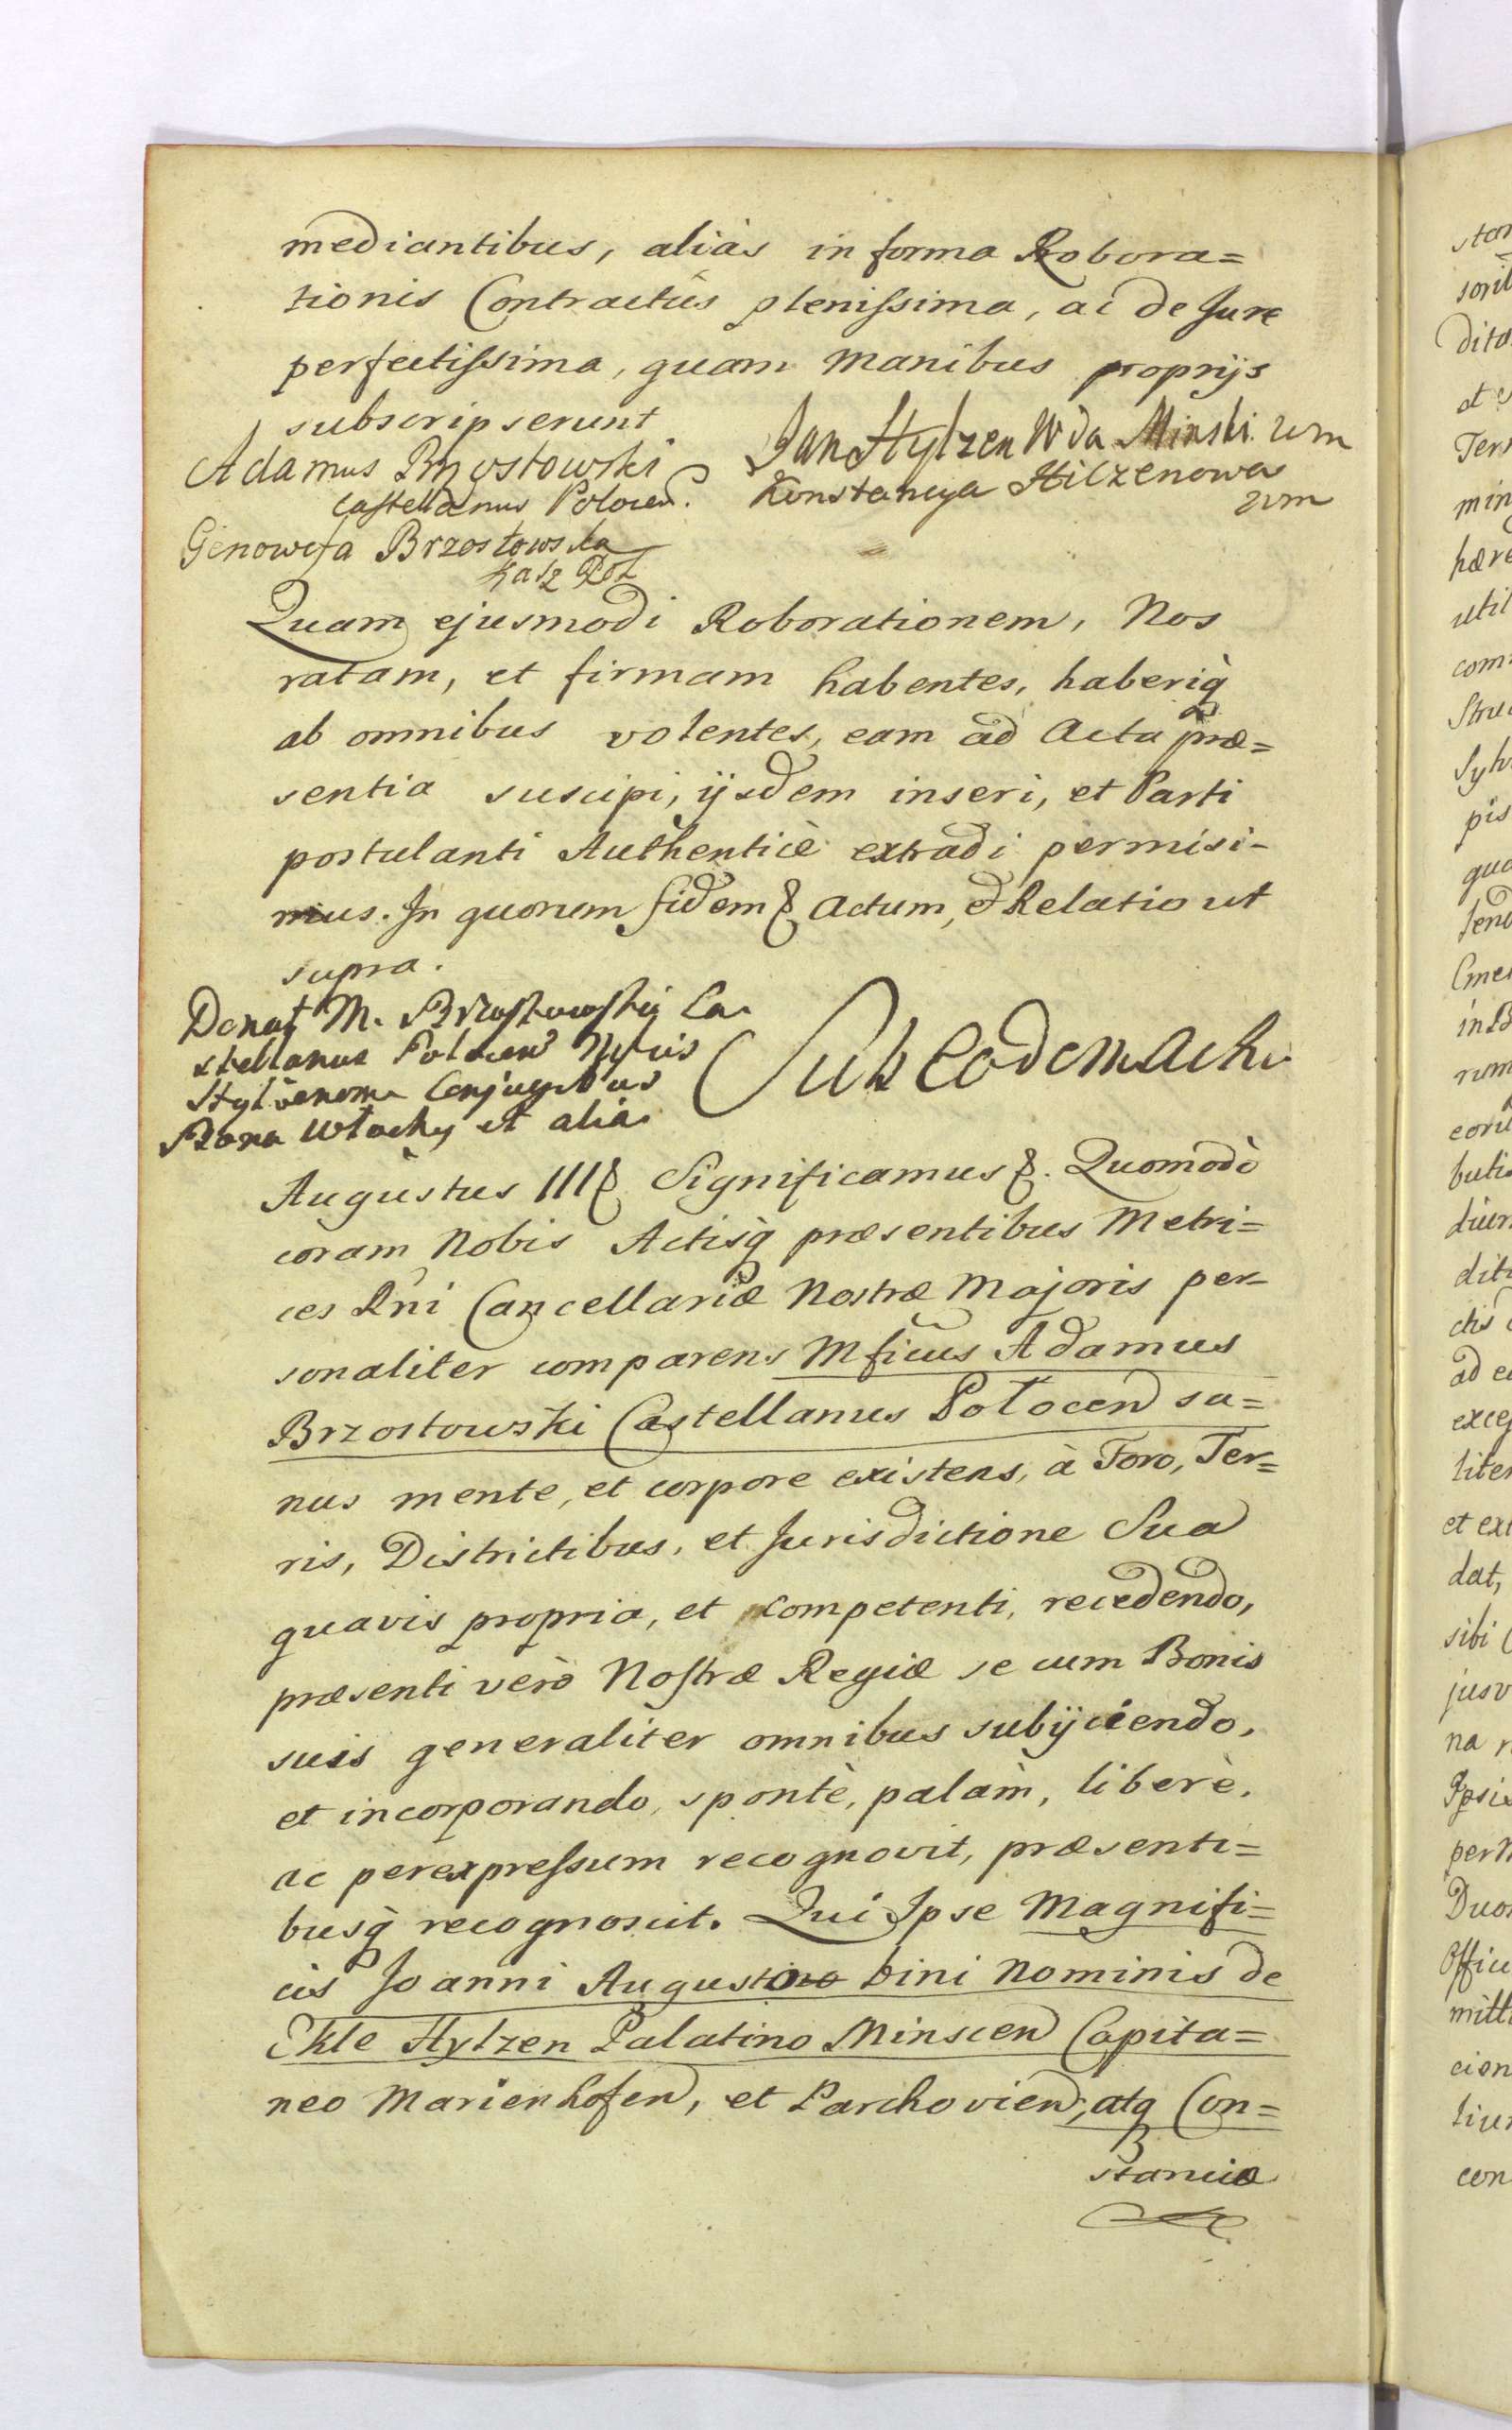 mediantibus, aliàs in forma Robora=
tionis Contractûs plenissima, ac de Jure
perfectissima, quam manibus proprijs
subscripserunt
Adamus Brzostowski
Castellanus Polocen.
Genowefa Brzostowska
Kasz Poł
Jan Hylzen Wda Minski mm
Konstancya Hilzenowa
mm
Quam ejusmodi Roborationem, Nos
ratam, et firmam habentes, haberiq̀
ab omnibus volentes, eam ad Acta præ=
sentia suscipi, ijsdem inseri, et Parti
postulanti Authenticè extradi permisi-
mus. In quorum fidem & Actum, et Relatio ut
supra.
Donat M. Brzostowski Ca.
stellanus Polocen
Hylzenom Conjugibus
Bona Włochy et alia.
Sub eodem actu
Augustus III & Significamus &. Quomodò
coram Nobis Actisq̀ præsentibus Metri=
ces Rni Cancellariæ Nostræ Majoris per-
sonaliter comparens Mficus Adamus
Brzostowski Castellanus Połocen sa=
nus mente, et corpore existens, à Foro, Ter=
ris, Districtibus, et Jurisdictione Sua
quavis propria, et competenti, recedendo,
præsenti verò Nostræ Regiæ se cum Bonis
suis generaliter omnibus subijciendo,
et incorporando, spontè, palàm, liberè,
ac perexpressum recognovit, præsenti=
busq̀ recognoscit. Qui Ipse Magnifi=
cis Joanni Augusto bini Nominis de
Ekle Hylzen Palatino Minscen Capita=
neo Marienhofen, et Parchovien, atq Con=
stanciæ